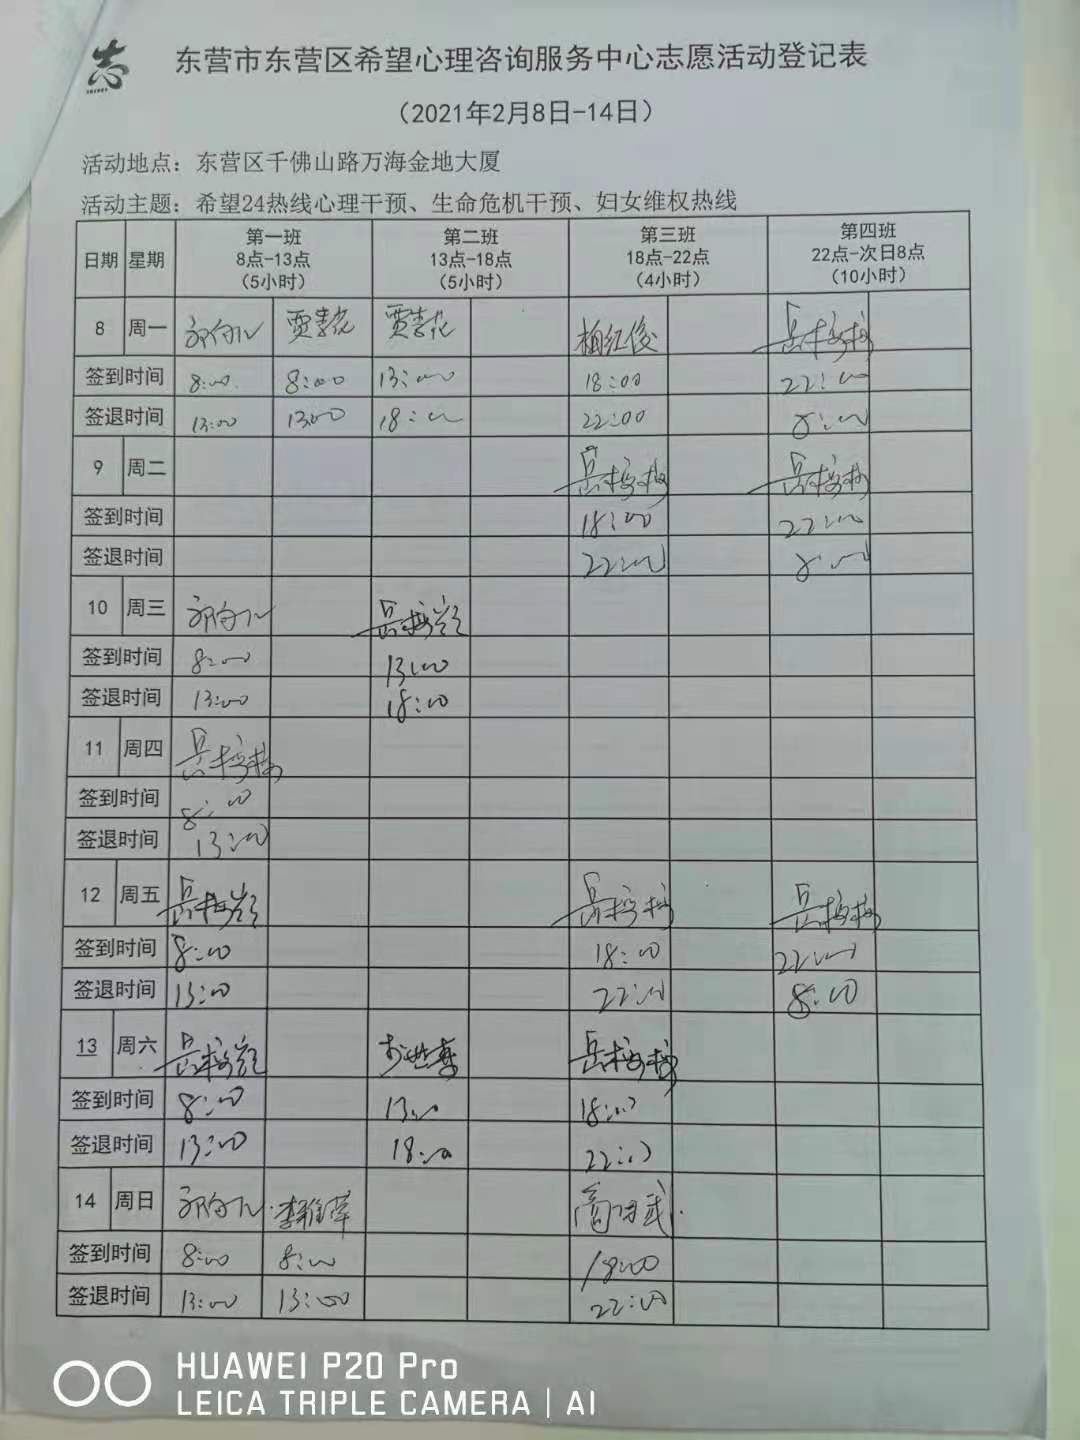 志
东营市东营区希望心理咨询服务中心志愿活动登记表
（2021年2月8日-14日）
活动地点：东营区千佛山路万海金地大厦
活动主题：希望24热线心理干预、生命危机干预、妇女维权热线
日期 星期 第一班 8点-13点 （5小时） 第二班 13点-18点 （5小时） 第三班 18点-22点 （4小时） 第四班 22点-次日8点 （10小时）
8 周一
签到时间 8:00 8:00 13:00 18:00 22:00
签退时间 13:00 13:00 18:00 22:00 8:00
9 周二
签到时间 18:00 22:00
签退时间 22:00 8:00
10 周三
签到时间 8:00 13:00
签退时间 13:00 18:00
11 周四
签到时间 8:00
签退时间 13:00
12 周五
签到时间 8:00 18:00 22:00
签退时间 13:00 22:00 8:00
13 周六
签到时间 8:00 13:00 18:00
签退时间 13:00 18:00 22:00
14 周日
签到时间 8:00 8:00 18:00
签退时间 13:00 13:00 22:00
HUAWEI P20 Pro
LEICA TRIPLE CAMERA | AI